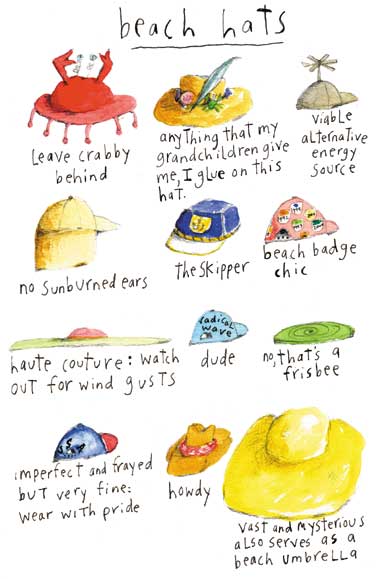 beach hats
Leave crabby
behind
anything that my
grandchildren give
me, I glue on this
hat.
viable
alternative
energy
source
no sunburned ears
the skipper
beach badge
chic
haute couture: watch
out for wind gusts
radical
wave
dude
no, that's a
frisbee
imperfect and frayed
but very fine:
wear with pride
howdy
vast and mysterious
also serves as a
beach umbrella